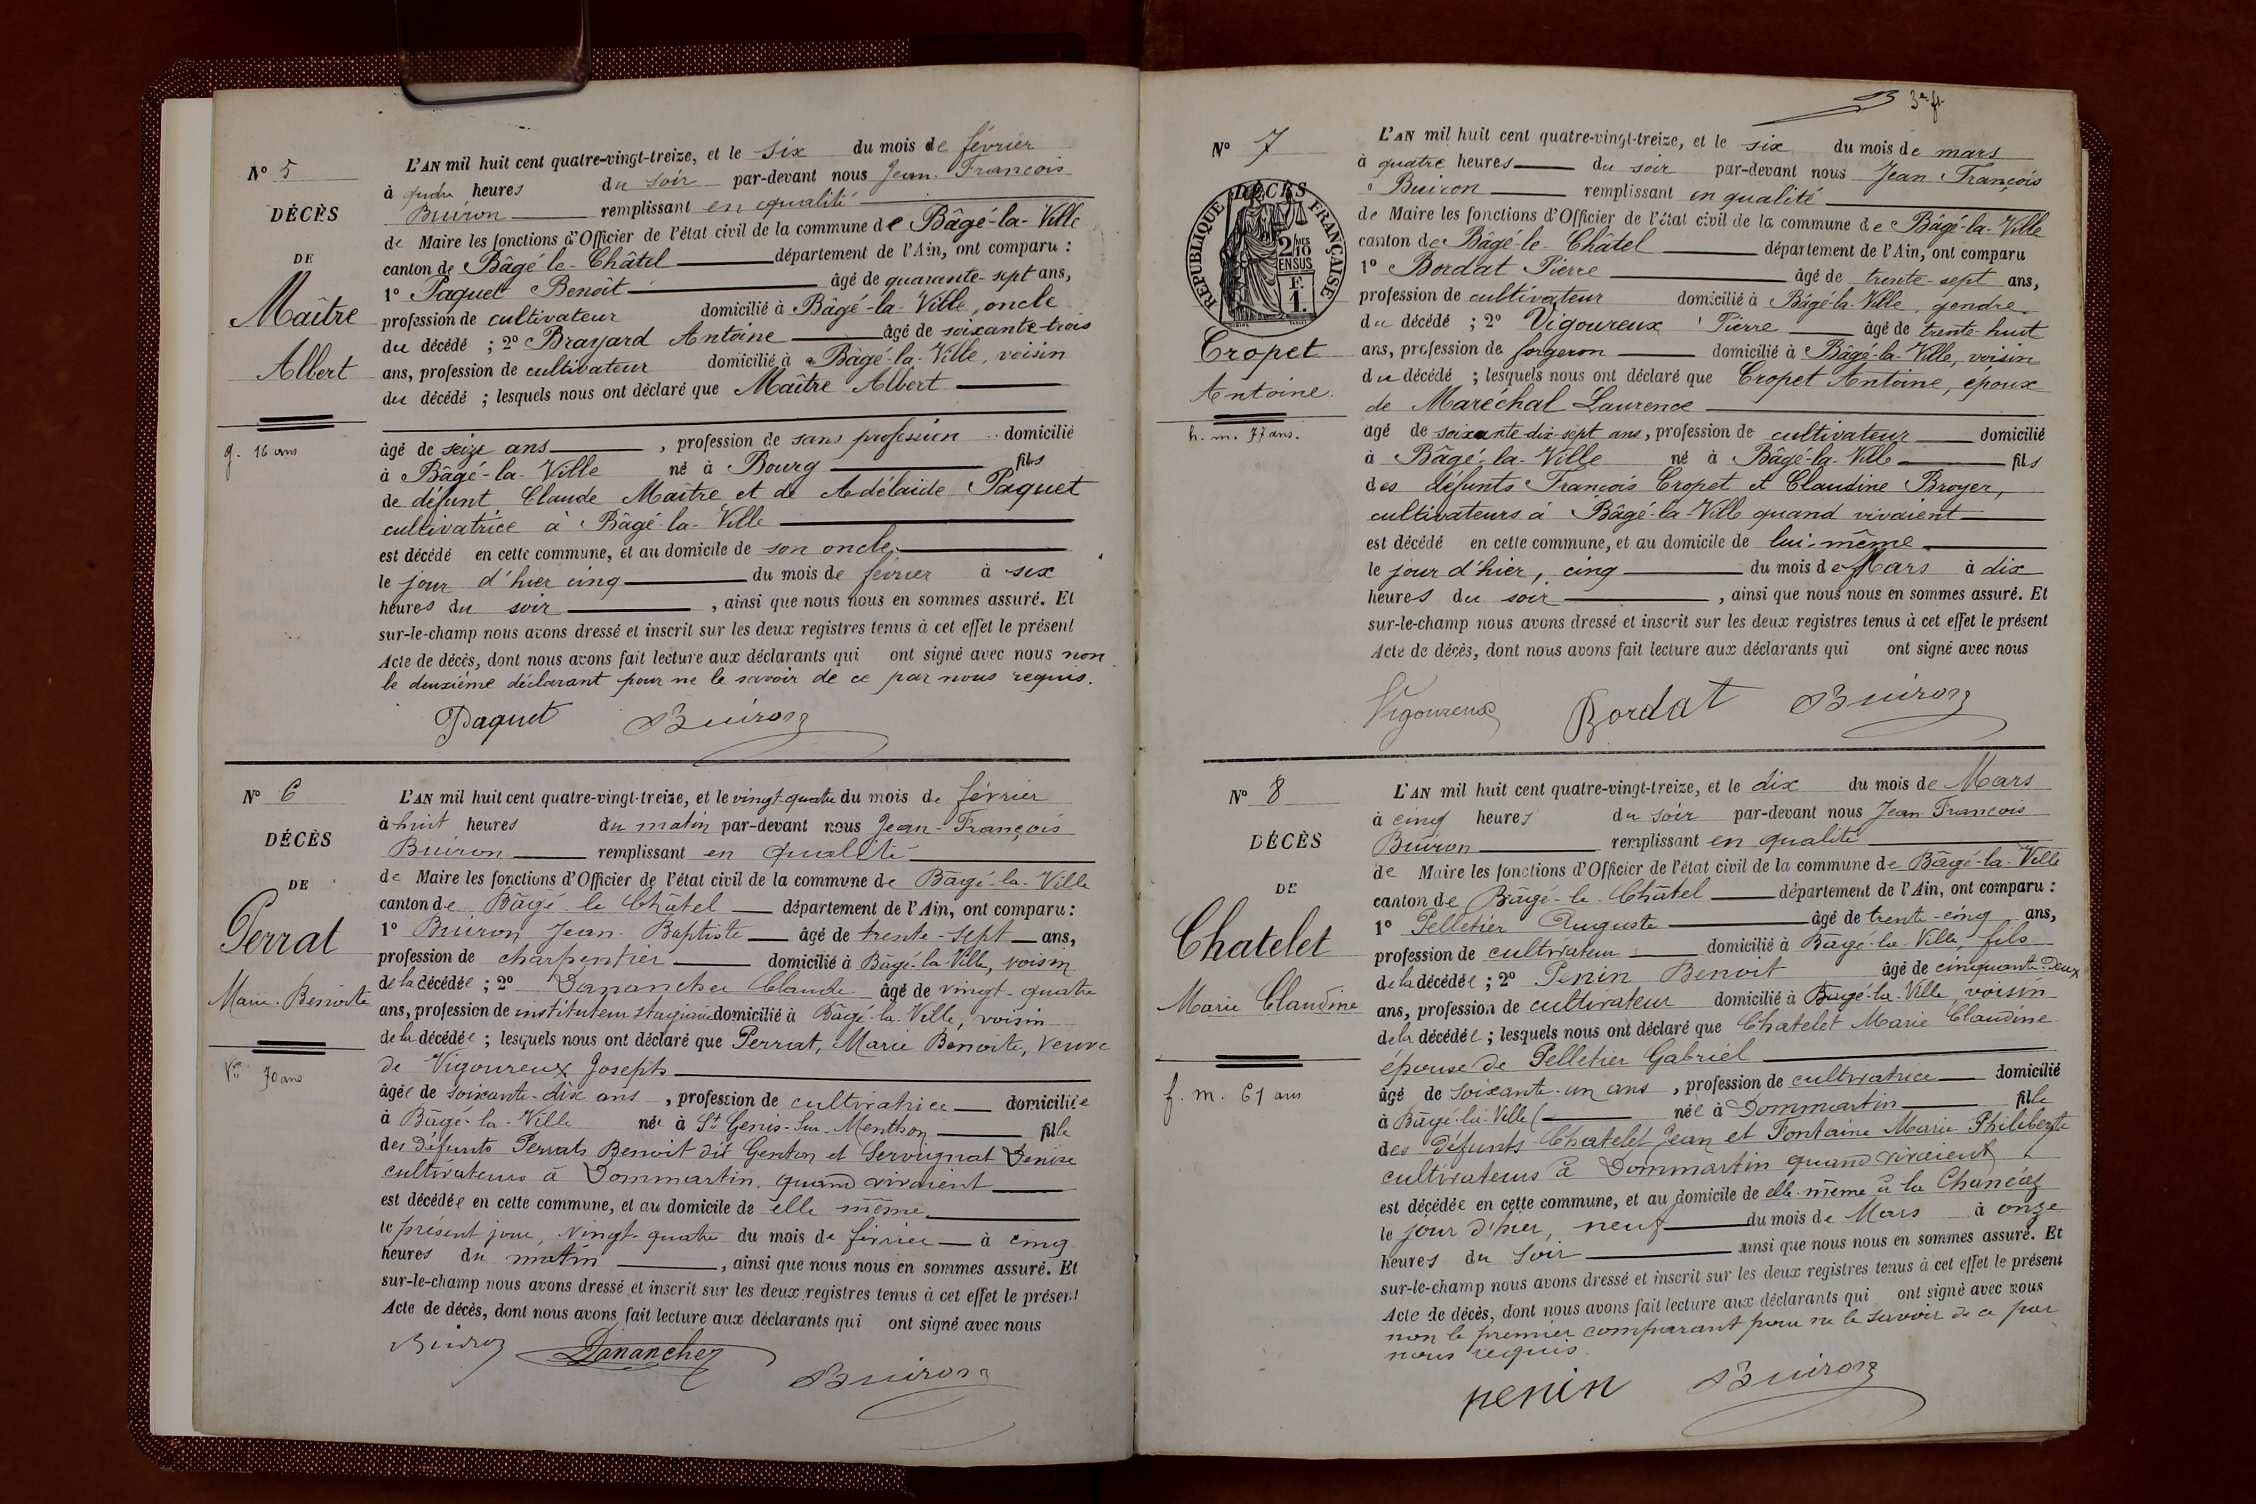 N° 5
DÉCÈS
DE
Maître
Albert
g. 16 ans
L'AN mil huit cent quatre-vingt-treize, et le six du mois de février
à quatre heures du soir par-devant nous Jean-François
Buiron remplissant en qualité
de Maire les fonctions d'Officier de l'état civil de la commune de Bâgé-la-Ville
canton de Bâgé-le-Châtel département de l'Ain, ont comparu :
1° Paquet Benoit âgé de quarante-sept ans,
profession de cultivateur domicilié à Bâgé-la-Ville, oncle
du décédé ; 2° Brayard Antoine âgé de soixante-trois
ans, profession de cultivateur domicilié à Bâgé-la-Ville, voisin
du décédé ; lesquels nous ont déclaré que Maître Albert
âgé de seize ans, profession de sans profession domicilié
à Bâgé-la-Ville né à Bourg fils
de défunt Claude Maître et de Adélaïde Paquet
cultivatrice à Bâgé-la-Ville
est décédé en cette commune, et au domicile de son oncle,
le jour d'hier cinq du mois de février à six
heures du soir, ainsi que nous nous en sommes assuré. Et
sur-le-champ nous avons dressé et inscrit sur les deux registres tenus à cet effet le présent
Acte de décès, dont nous avons fait lecture aux déclarants qui ont signé avec nous non
le deuxième déclarant pour ne le savoir de ce par nous requis.
Paquet Buiron
N° 6
DÉCÈS
DE
Perrat
Marie-Benoite
Vve 70 ans
L'AN mil huit cent quatre-vingt-treize, et le vingt-quatre du mois de février
à huit heures du matin par-devant nous Jean-François
Buiron remplissant en qualité
de Maire les fonctions d'Officier de l'état civil de la commune de Bâgé-la-Ville
canton de Bâgé le Châtel département de l'Ain, ont comparu :
1° Buiron Jean-Baptiste âgé de trente-sept ans,
profession de charpentier domicilié à Bâgé-la-Ville, voisin
de la décédée ; 2° Dananchez Claude âgé de vingt-quatre
ans, profession de instituteur stagiaire domicilié à Bâgé-la-Ville, voisin
de la décédée ; lesquels nous ont déclaré que Perrat, Marie Benoite, veuve
de Vigoureux Joseph
âgée de soixante-dix ans, profession de cultivatrice domiciliée
à Bâgé-la-Ville née à St Genis-sur-Menthon fille
des défunts Perrat Benoit dit Genton et Servignat Denise
cultivateurs à Dommartin quand vivaient
est décédée en cette commune, et au domicile de elle même
le présent jour, vingt-quatre du mois de février à cinq
heures du matin, ainsi que nous nous en sommes assuré. Et
sur-le-champ nous avons dressé et inscrit sur les deux registres tenus à cet effet le présent
Acte de décès, dont nous avons fait lecture aux déclarants qui ont signé avec nous
Buiron Dananchez Buiron
3e ft
N° 7
DÉCÈS
RÉPUBLIQUE FRANÇAISE
2/10 EN SUS
F. 1.
Cropet
Antoine.
h. m. 77 ans.
L'AN mil huit cent quatre-vingt-treize, et le six du mois de mars
à quatre heures du soir par-devant nous Jean François
Buiron remplissant en qualité
de Maire les fonctions d'Officier de l'état civil de la commune de Bâgé-la-Ville
canton de Bâgé-le-Châtel département de l'Ain, ont comparu
1° Bordat Pierre âgé de trente-sept ans,
profession de cultivateur domicilié à Bâgé-la-Ville, gendre
du décédé ; 2° Vigoureux Pierre âgé de trente-huit
ans, profession de forgeron domicilié à Bâgé-la-Ville, voisin
du décédé ; lesquels nous ont déclaré que Cropet Antoine, époux
de Maréchal Laurence
agé de soixante-dix-sept ans, profession de cultivateur domicilié
à Bâgé-la-Ville né à Bâgé-la-Ville fils
des défunts François Cropet et Claudine Broyer,
cultivateurs à Bâgé-la-Ville quand vivaient
est décédé en cette commune, et au domicile de lui-même
le jour d'hier, cinq du mois de Mars à dix
heures du soir, ainsi que nous nous en sommes assuré. Et
sur-le-champ nous avons dressé et inscrit sur les deux registres tenus à cet effet le présent
Acte de décès, dont nous avons fait lecture aux déclarants qui ont signé avec nous
Vigoureux Bordat Buiron
N° 8
DÉCÈS
DE
Chatelet
Marie Claudine
f. m. 61 ans
L'AN mil huit cent quatre-vingt-treize, et le dix du mois de Mars
à cinq heures du soir par-devant nous Jean François
Buiron remplissant en qualité
de Maire les fonctions d'Officier de l'état civil de la commune de Bâgé-la-Ville
canton de Bâgé-le-Châtel département de l'Ain, ont comparu :
1° Pelletier Auguste âgé de trente-cinq ans,
profession de cultivateur domicilié à Bâgé-la-Ville, fils
de la décédée ; 2° Penin Benoit âgé de cinquante-deux
ans, profession de cultivateur domicilié à Bâgé-la-Ville, voisin
de la décédée ; lesquels nous ont déclaré que Chatelet Marie Claudine
épouse de Pelletier Gabriel
âgé de soixante-un ans, profession de cultivatrice domicilié
à Bâgé-la-Ville née à Dommartin fille
des défunts Chatelet Jean et Fontaine Marie Philiberte
cultivateurs à Dommartin quand vivaient
est décédée en cette commune, et au domicile de elle-même à la Chanéaz
le jour d'hier, neuf du mois de Mars à onze
heures du soir ainsi que nous nous en sommes assuré. Et
sur-le-champ nous avons dressé et inscrit sur les deux registres tenus à cet effet le présent
Acte de décès, dont nous avons fait lecture aux déclarants qui ont signé avec nous
non le premier comparant pour ne le savoir de ce par
nous requis.
penin Buiron